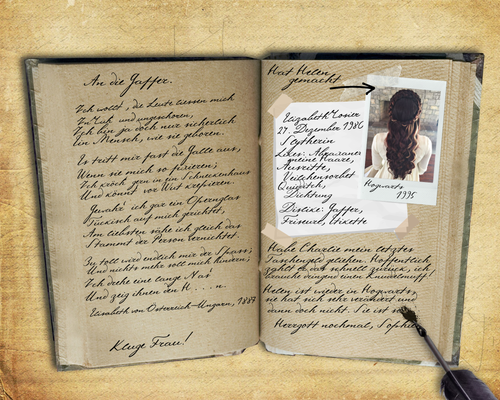 An die Gaffer.
Ich wollt, die Leute liessen mich
In Ruh' und ungeschoren,
Ich bin ja doch nur sicherlich
Ein Mensch, wie sie geboren.
Es tritt mir fast die Galle aus,
Wenn sie mich so fixieren;
Ich kröch gern in ein Schneckenhaus
Und könnt vor Wut krepieren.
Gewahr ich gar ein Opernglas
Tückisch auf mich gerichtet,
Am liebsten sähe ich gleich das
Stammt der Person vernichtet.
Zu toll wird endlich mir der Spass;
Und nichts mehr soll mich hindern;
Ich drehe eine lange Nas'
Und zeig ihnen den H.....n.
Elisabeth von Österreich-Ungarn, 1887
Kluge Frau!
Hat Helen
gemacht
Elizabeth Rosier
27. Dezember 1986
Slytherin
Likes:
meine Haare,
Ausritte,
Veilchensorbet
Quidditch,
Dichtung
Dislike: Gaffer,
Friseure, Etikette
Hogwarts
1995
Habe Charlie mein letztes
Taschengeld geliehen. Hoffentlich
zahlt er das schnell zurück, ich
brauche dringend einen Knieselmuff!
Helen ist wieder in Hogwarts,
sie hat sich sehr verändert und
dann doch nicht. Sie ist so
Herrgott nochmal, Sophie